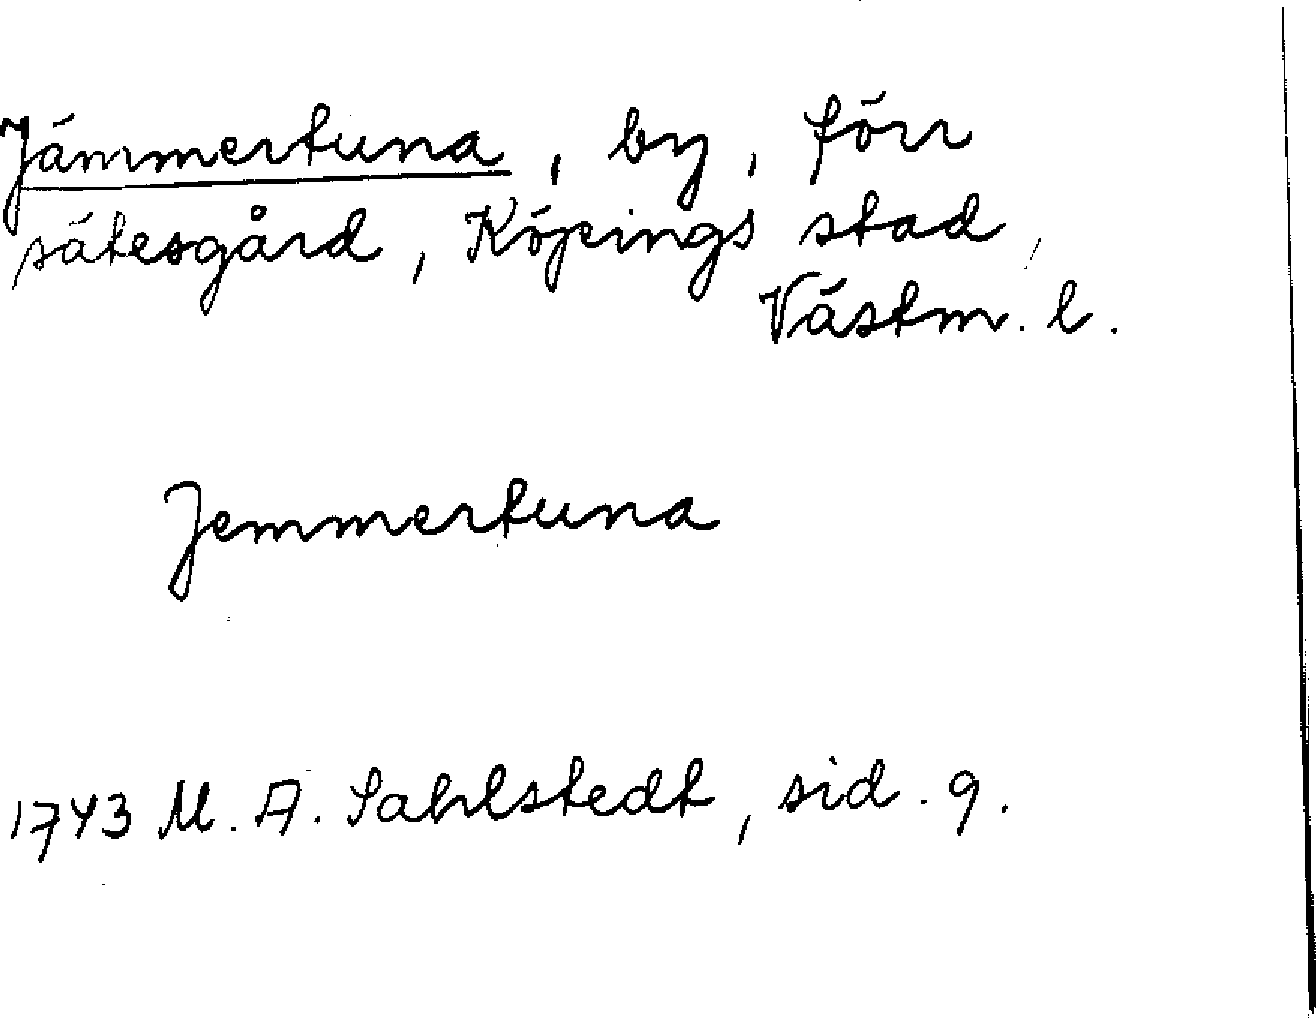 Jämmertuna, by, förr
sätesgård, Köpings stad,
Västm. l.
Jemmertuna
1743 M. A. Sahlstedt, sid. 9.